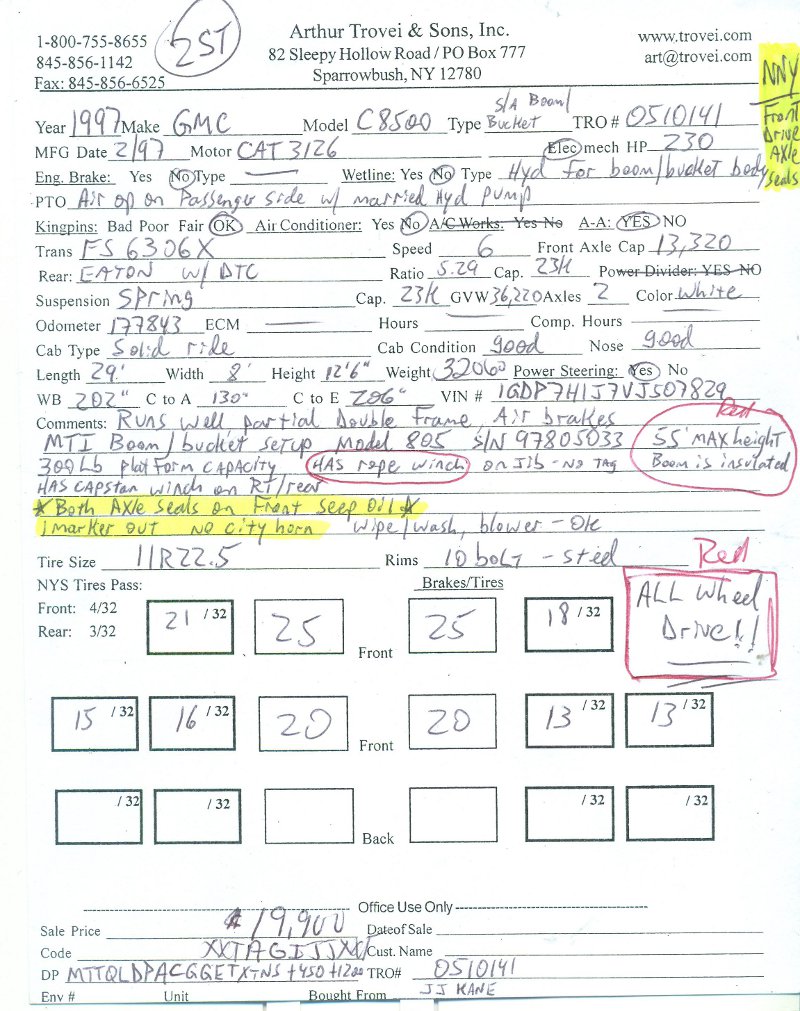 1-800-755-8655
845-856-1142
Fax: 845-856-6525
2ST
Arthur Trovei & Sons, Inc.
82 Sleepy Hollow Road / PO Box 777
Sparrowbush, NY 12780
www.trovei.com
art@trovei.com
NNY
Front
Drive
Axle
Seals
Year 1997 Make GMC Model C8500 Type S/A Boom/ Bucket TRO # 0510141
MFG Date 2/97 Motor CAT 3126 Elec mech HP 230
Eng. Brake: Yes No Type Wetline: Yes No Type Hyd for boom/bucket body
PTO Air op on Passenger side w/ married Hyd pump
Kingpins: Bad Poor Fair OK Air Conditioner: Yes No A/C Works: Yes No A-A: YES NO
Trans FS 6306X Speed 6 Front Axle Cap 13,320
Rear: EATON w/ DTC Ratio 5.29 Cap. 23K Power Divider: YES NO
Suspension Spring Cap. 23K GVW 36,220 Axles 2 Color White
Odometer 177843 ECM Hours Comp. Hours
Cab Type Solid ride Cab Condition good Nose good
Length 29' Width 8' Height 12'6" Weight 32060 Power Steering: Yes No
WB 202" C to A 130" C to E 206" VIN # 1GDP7H1J7VJ507829
Comments: Runs well, partial Double Frame, Air brakes
Red
MTI Boom/bucket setup Model 805 S/N 97805033 55' MAX height
300 Lb platform capacity HAS rope winch on Jib - No TAG Boom is insulated
HAS CAPStan winch on RT/rear
* Both Axle Seals on Front Seep Oil *
1 marker out No city horn Wipe/wash, blower - OK
Tire Size 11R22.5 Rims 10 bolt - steel
Red
NYS Tires Pass: Brakes/Tires
Front: 4/32
Rear: 3/32
21 /32 25 Front 25 18 /32
ALL Wheel
Drive!!
15 /32 16 /32 20 Front 20 13 /32 13 /32
/32 /32 Back /32 /32
Office Use Only
Sale Price $19,900 Date of Sale
Code Cust. Name
DP MTTQLDPACGGETXTNS +450 +1200 TRO# 0510141
Env # Unit Bought From JJ KANE